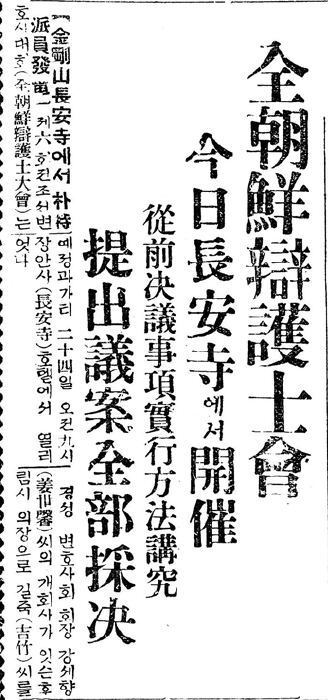 全朝鮮辯護士會
今日長安寺에서開催
從前决議事項實行方法講究
提出議案全部採决
【金剛山長安寺에서 朴特
派員發電】 뎨六회전조선변
호사대회(全朝鮮辯護士大會)는
예정과가티 二十四일 오전九시
장안사(長安寺)호텔에서 열리
엇다
경성 변호사회 회장 강세형
(姜世馨)씨의 개회사가 잇슨후
림시 의장으로 길죽(吉竹)씨를